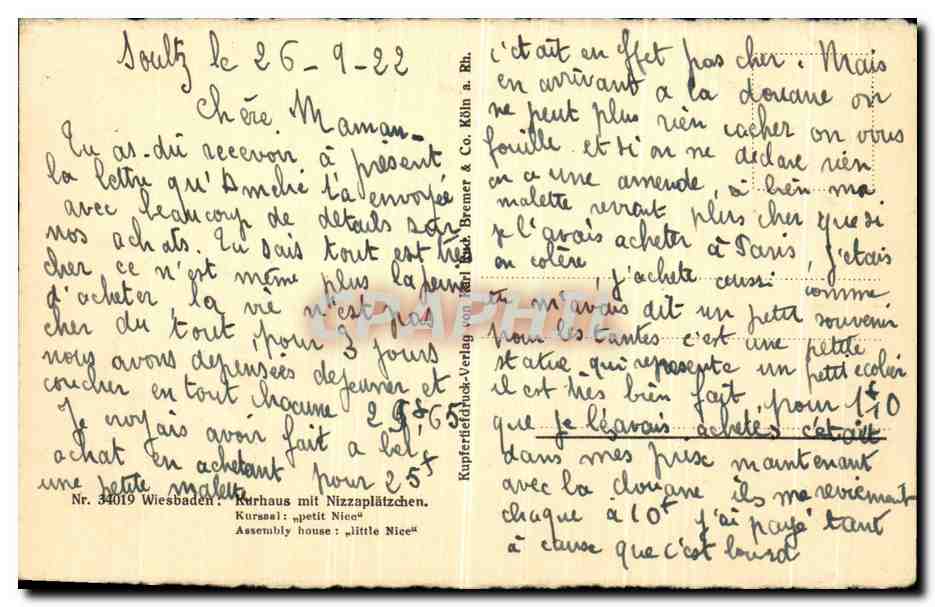 Soultz le 26-9-22
Chère Maman-
Tu as-dû recevoir à présent
la lettre qu'Amélie t'a envoyée
avec beaucoup de détails sur
nos achats. Tu sais tout est très
cher, ce n'est même plus la peine
d'acheter la vie n'est pas
cher du tout, pour 3 jours
nous avons depensées dejeuner et
coucher en tout chacune 29f65
Je croyais avoir fait a bel
achat en achetant pour 25f
une petite malette
Nr. 34019 Wiesbaden. Kurhaus mit Nizzaplätzchen.
Kursaal: „petit Nice"
Assembly house: „little Nice"
Kupfertiefdruck-Verlag von Karl Rud. Bremer & Co. Köln a. Rh.
c'ctait en effet pas cher. Mais
en arrivant a la douane on
ne peut plus rien cacher on vous
fouille et si on ne déclare rien
on a une amende, à bien ma
malette revient plus cher que si
je l'avais acheter à Paris, j'etais
en colère, j'achete aussi comme
tu m'avais dit un petit souvenir
pour les tantes c'est une petite
statue qui represente un petit ecolier
il est tres bien fait, pour 1f10
que je les avais achetes cetait
dans mes prix maintenant
avec la douane ils me reviennent
chaque à 10f j'ai payé tant
à cause que c'est lourd
CPAPHIL